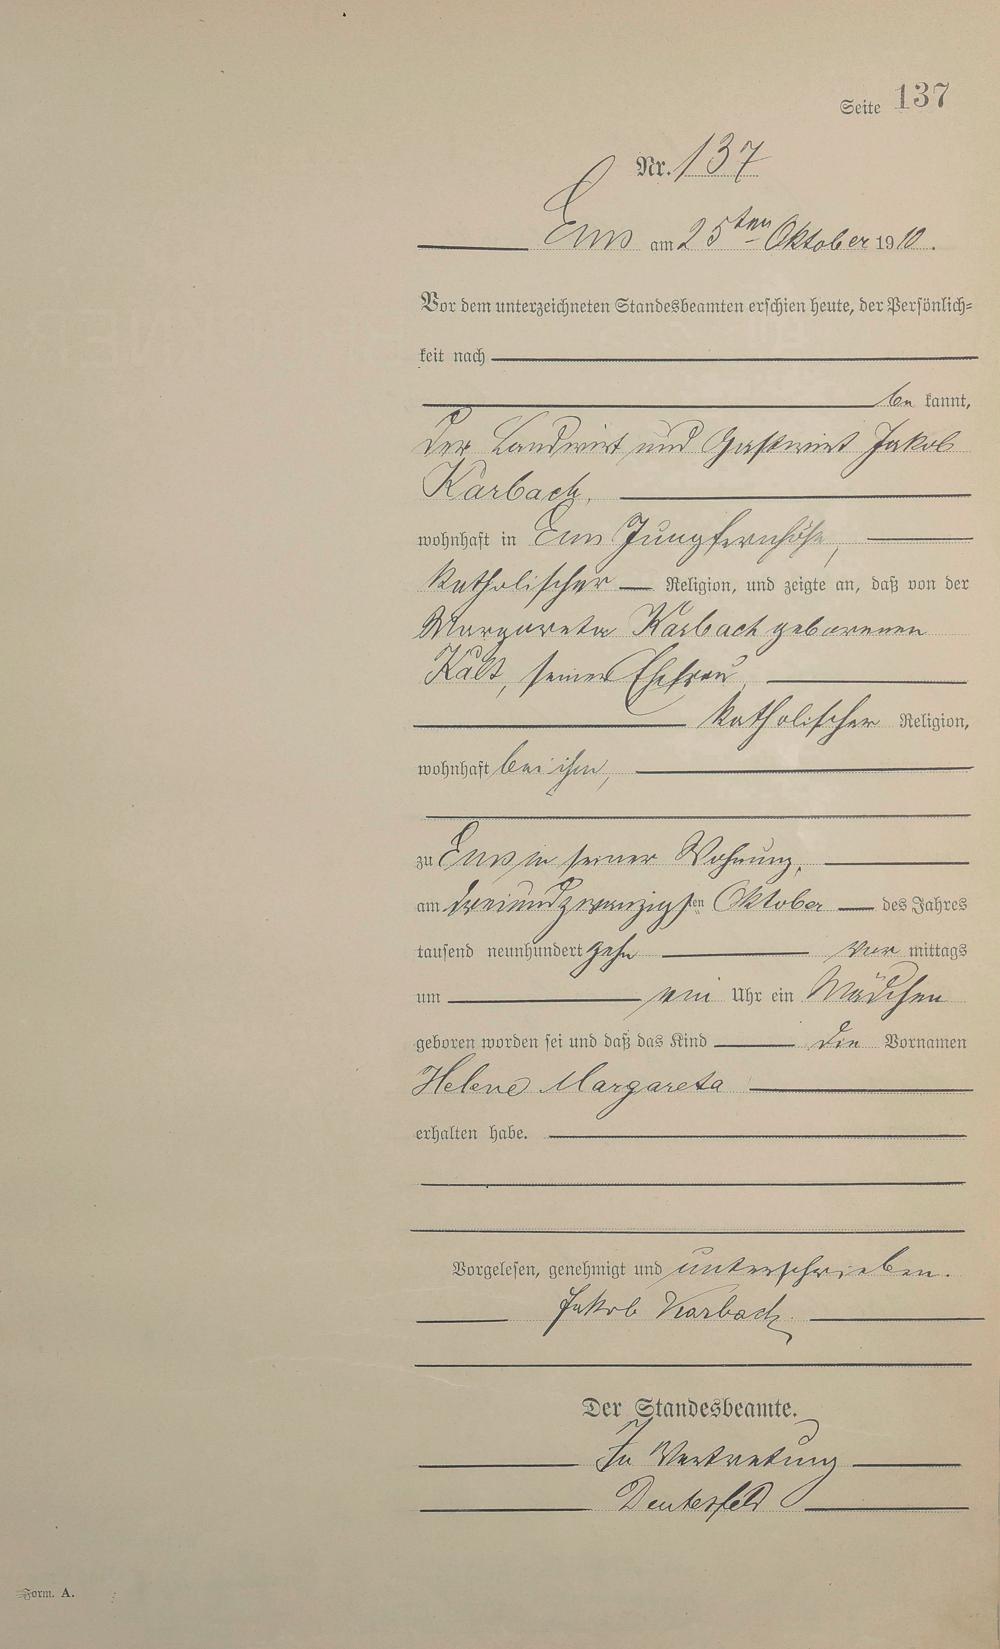 Seite 137
Nr. 137
Ems am 25ten Oktober 1910.
Vor dem unterzeichneten Standesbeamten erschien heute, der Persönlich=
keit nach
be kannt,
der Landwirt und Gastwirt Jakob
Karbach,
wohnhaft in Ems Jungfernhöhe,
katholischer Religion, und zeigte an, daß von der
Margareta Karbach geborenen
Kalt, seiner Ehefrau,
katholischer Religion,
wohnhaft bei ihm,
zu Ems in seiner Wohnung,
am dreiundzwanzigsten Oktober des Jahres
tausend neunhundert zehn vor mittags
um ein Uhr ein Mädchen
geboren worden sei und daß das Kind die Vornamen
Helene Margareta
erhalten habe.
Vorgelesen, genehmigt und unterschrieben.
Jakob Karbach
Der Standesbeamte.
In Vertretung
Deutesfeld
Form. A.